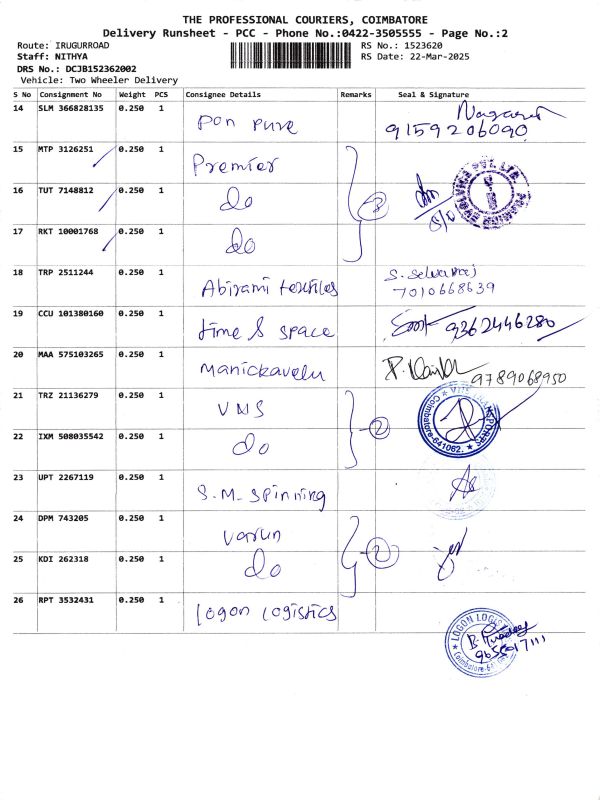 THE PROFESSIONAL COURIERS, COIMBATORE
Delivery Runsheet - PCC - Phone No.:0422-3505555 - Page No.:2
Route: IRUGURROAD RS No.: 1523620
Staff: NITHYA RS Date: 22-Mar-2025
DRS No.: DCJB152362002
Vehicle: Two Wheeler Delivery
S No Consignment No Weight PCS Consignee Details Remarks Seal & Signature
14 SLM 366828135 0.250 1 pon pure 9159206090
15 MTP 3126251 0.250 1 Premier
16 TUT 7148812 0.250 1 do 3
17 RKT 10001768 0.250 1 do
18 TRP 2511244 0.250 1 Abirami textiles S. Selvaraj
7010668639
19 CCU 101380160 0.250 1 time & space 9362446280
20 MAA 575103265 0.250 1 Manickavelu 9789068950
21 TRZ 21136279 0.250 1 VNS
22 IXM 508035542 0.250 1 do 2 Coimbatore-641062.
23 UPT 2267119 0.250 1 S.M. Spinning
24 DPM 743205 0.250 1 varun
25 KDI 262318 0.250 1 do 2
26 RPT 3532431 0.250 1 Logon Logistics
LOGON LOGIS
Coimbatore-641